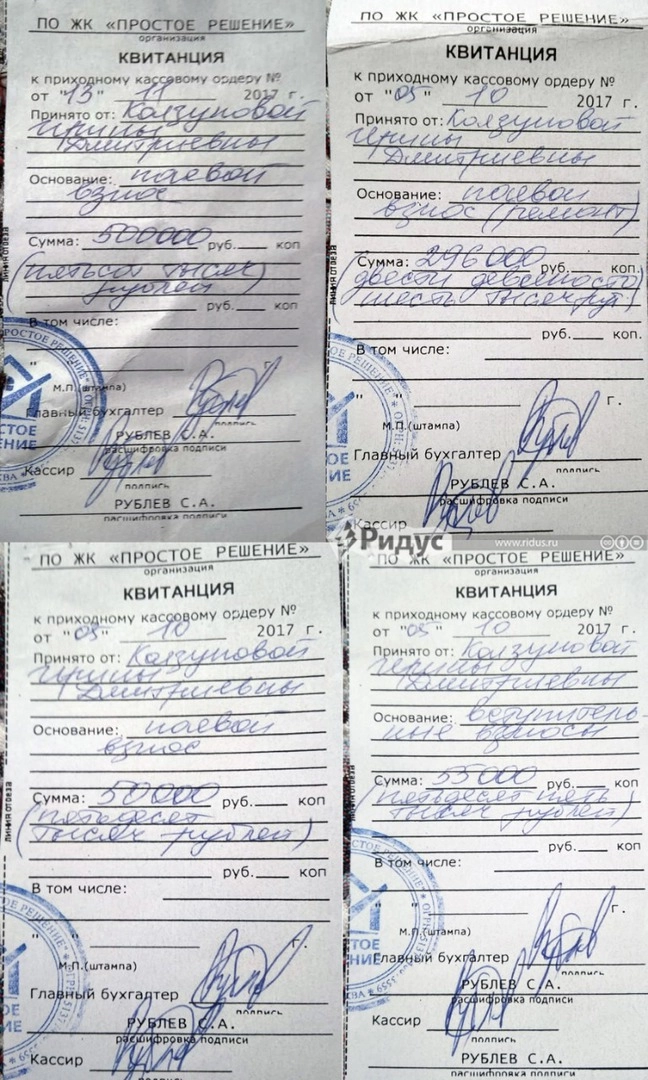 ПО ЖК «ПРОСТОЕ РЕШЕНИЕ»
организация
КВИТАНЦИЯ
к приходному кассовому ордеру №
от "13" 11 2017 г.
Принято от: Колзуновой
Ирины
Дмитриевны
Основание: паевой
взнос
Сумма: 500000 руб. коп
(пятьсот тысяч
рублей)
руб. коп
В том числе:
"
М.П.(штампа)
Главный бухгалтер
подпись
РУБЛЕВ С.А.
расшифровка подписи
Кассир
подпись
РУБЛЕВ С.А.
расшифровка подписи
ПО ЖК «ПРОСТОЕ РЕШЕНИЕ»
организация
КВИТАНЦИЯ
к приходному кассовому ордеру №
от "05" 10 2017 г.
Принято от: Колзуновой
Ирины
Дмитриевны
Основание: паевой
взнос (ремонт)
Сумма: 296000 руб. коп.
(двести девяносто
шесть тысяч руб.)
руб. коп.
В том числе:
" " г.
М.П.(штампа)
Главный бухгалтер
подпись
РУБЛЕВ С.А.
расшифровка подписи
Кассир
линия отреза
Ридус www.ridus.ru
ПО ЖК «ПРОСТОЕ РЕШЕНИЕ»
организация
КВИТАНЦИЯ
к приходному кассовому ордеру №
от "05" 10 2017 г.
Принято от: Колзуновой
Ирины
Дмитриевны
Основание: паевой
взнос
Сумма: 50000 руб. коп
(пятьдесят
тысяч рублей)
руб. коп
В том числе:
" " г.
М.П.(штампа)
Главный бухгалтер
подпись
РУБЛЕВ С.А.
расшифровка подписи
Кассир
подпись
линия отреза
ПО ЖК «ПРОСТОЕ РЕШЕНИЕ»
организация
КВИТАНЦИЯ
к приходному кассовому ордеру №
от "05" 10 2017 г.
Принято от: Колзуновой
Ирины
Дмитриевны
Основание: вступитель
ные взносы
Сумма: 55000 руб. коп
(пятьдесят пять
тысяч рублей)
руб. коп
В том числе:
" " г.
М.П.(штампа)
Главный бухгалтер
подпись
РУБЛЕВ С.А.
расшифровка подписи
Кассир
подпись
РУБЛЕВ С.А.
расшифровка подписи
линия отреза